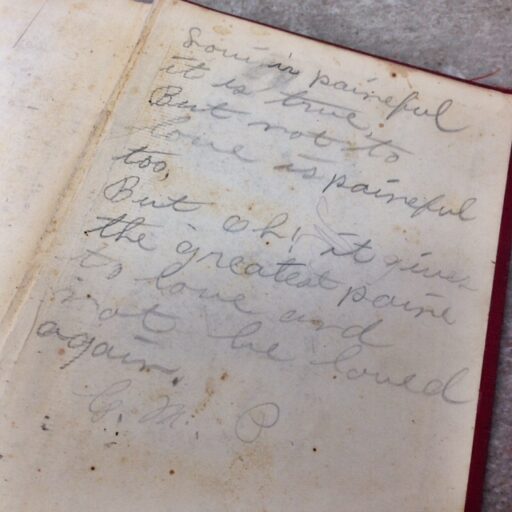 Love is paineful
it is true.
But not to
love is paineful
too,
But Oh! it gives
the greatest paine
to love and
not be loved
again.
G. M. P